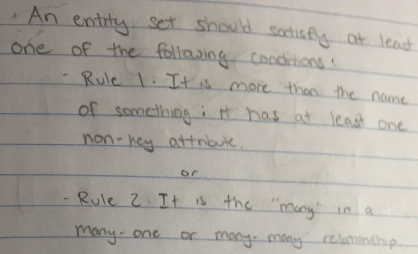 · An entity set should satisfy at least
one of the following conditions:
- Rule 1: It is more than the name
of something; it has at least one
non-key attribute.
or
- Rule 2: It is the "many" in a
many-one or many-many relationship.